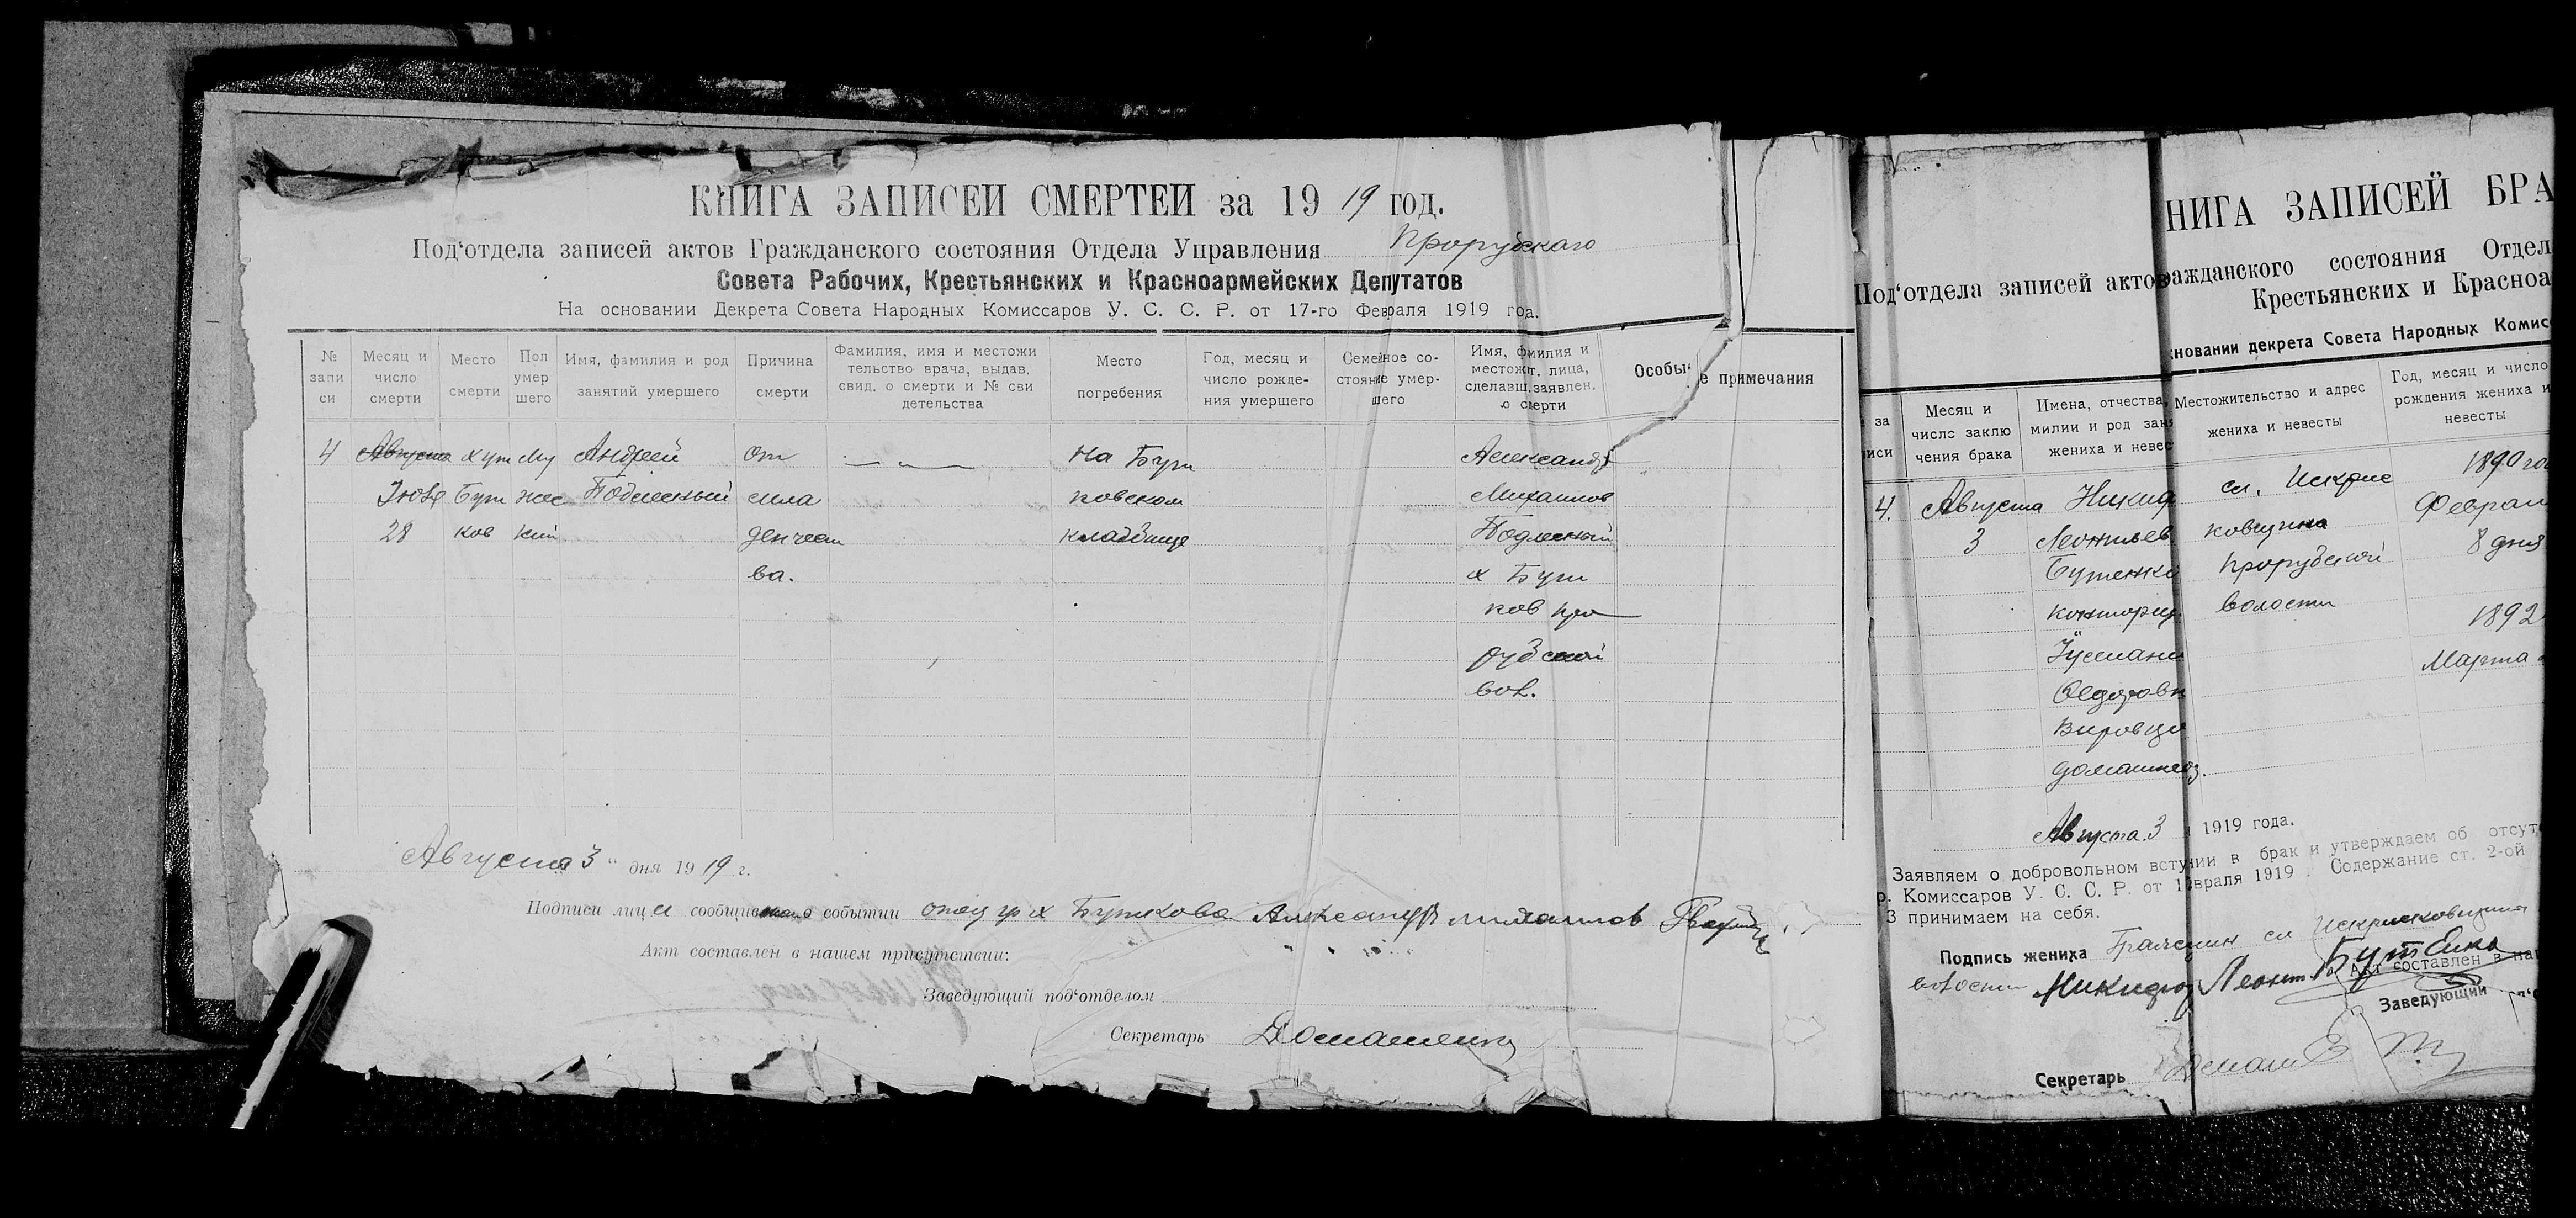 КНИГА ЗАПИСЕЙ СМЕРТЕЙ за 1919 год.
Под‘отдела записей актов Гражданского состояния Отдела Управления Прорубскаго
Совета Рабочих, Крестьянских и Красноармейских Депутатов
На основании Декрета Совета Народных Комиссаров У. С. С. Р. от 17-го Февраля 1919 года.
№ запи си
Месяц и число смерти
Место смерти
Пол умер шего
Имя, фамилия и род занятий умершего
Причина смерти
Фамилия, имя и местожи тельство врача, выдав. свид. о смерти и № сви детельства
Место погребения
Год, месяц и число рожде- ния умершего
Семейное со- стояние умер- шего
Имя, фамилия и местожит. лица, сделавш. заявлен. о смерти
Особые примечания
4 Августа хут Му Андрей От На Бут Александр
Июля Бут жес Подлесный сила ковском Михаилов
28 ков кий денчест кладбище Подлесный
ва. х Бут
ков Про
рубской
вол.
Августа 3 " дня 1919 г.
Подписи лица сообщив о событии отец гр х Буткова Александр Михаилов
Акт составлен в нашем присутствии:
Заведующий под‘отделом
Секретарь Домашенко
НИГА ЗАПИСЕЙ БРА
Под‘отдела записей актов ражданского состояния Отдел
Крестьянских и Красноа
новании декрета Совета Народных Комисс
за иси
Месяц и число заклю чения брака
Имена, отчества, милии и род заня жениха и невес
Местожительство и адрес жениха и невесты
Год, месяц и число рождения жениха и невесты
4. Августа Никиф сл. Искрис 1890 го
3 Леонтьев ковщина Феврал
Бутенко Прорубской 8 дня
контор волости
1892
Марта
Федоровн
Вировцо
домашнец.
Августа 3 1919 года.
Заявляем о добровольном вступ ии в брак и утверждаем об отсут
р. Комиссаров У. С. С. Р. от 1 враля 1919 Содержание ст. 2-ой
З принимаем на себя.
Подпись жениха Гражднин сл Искрисковщина
волости Никифор Леонт. Бутенко
Акт составлен в на
Заведующий
Секретарь